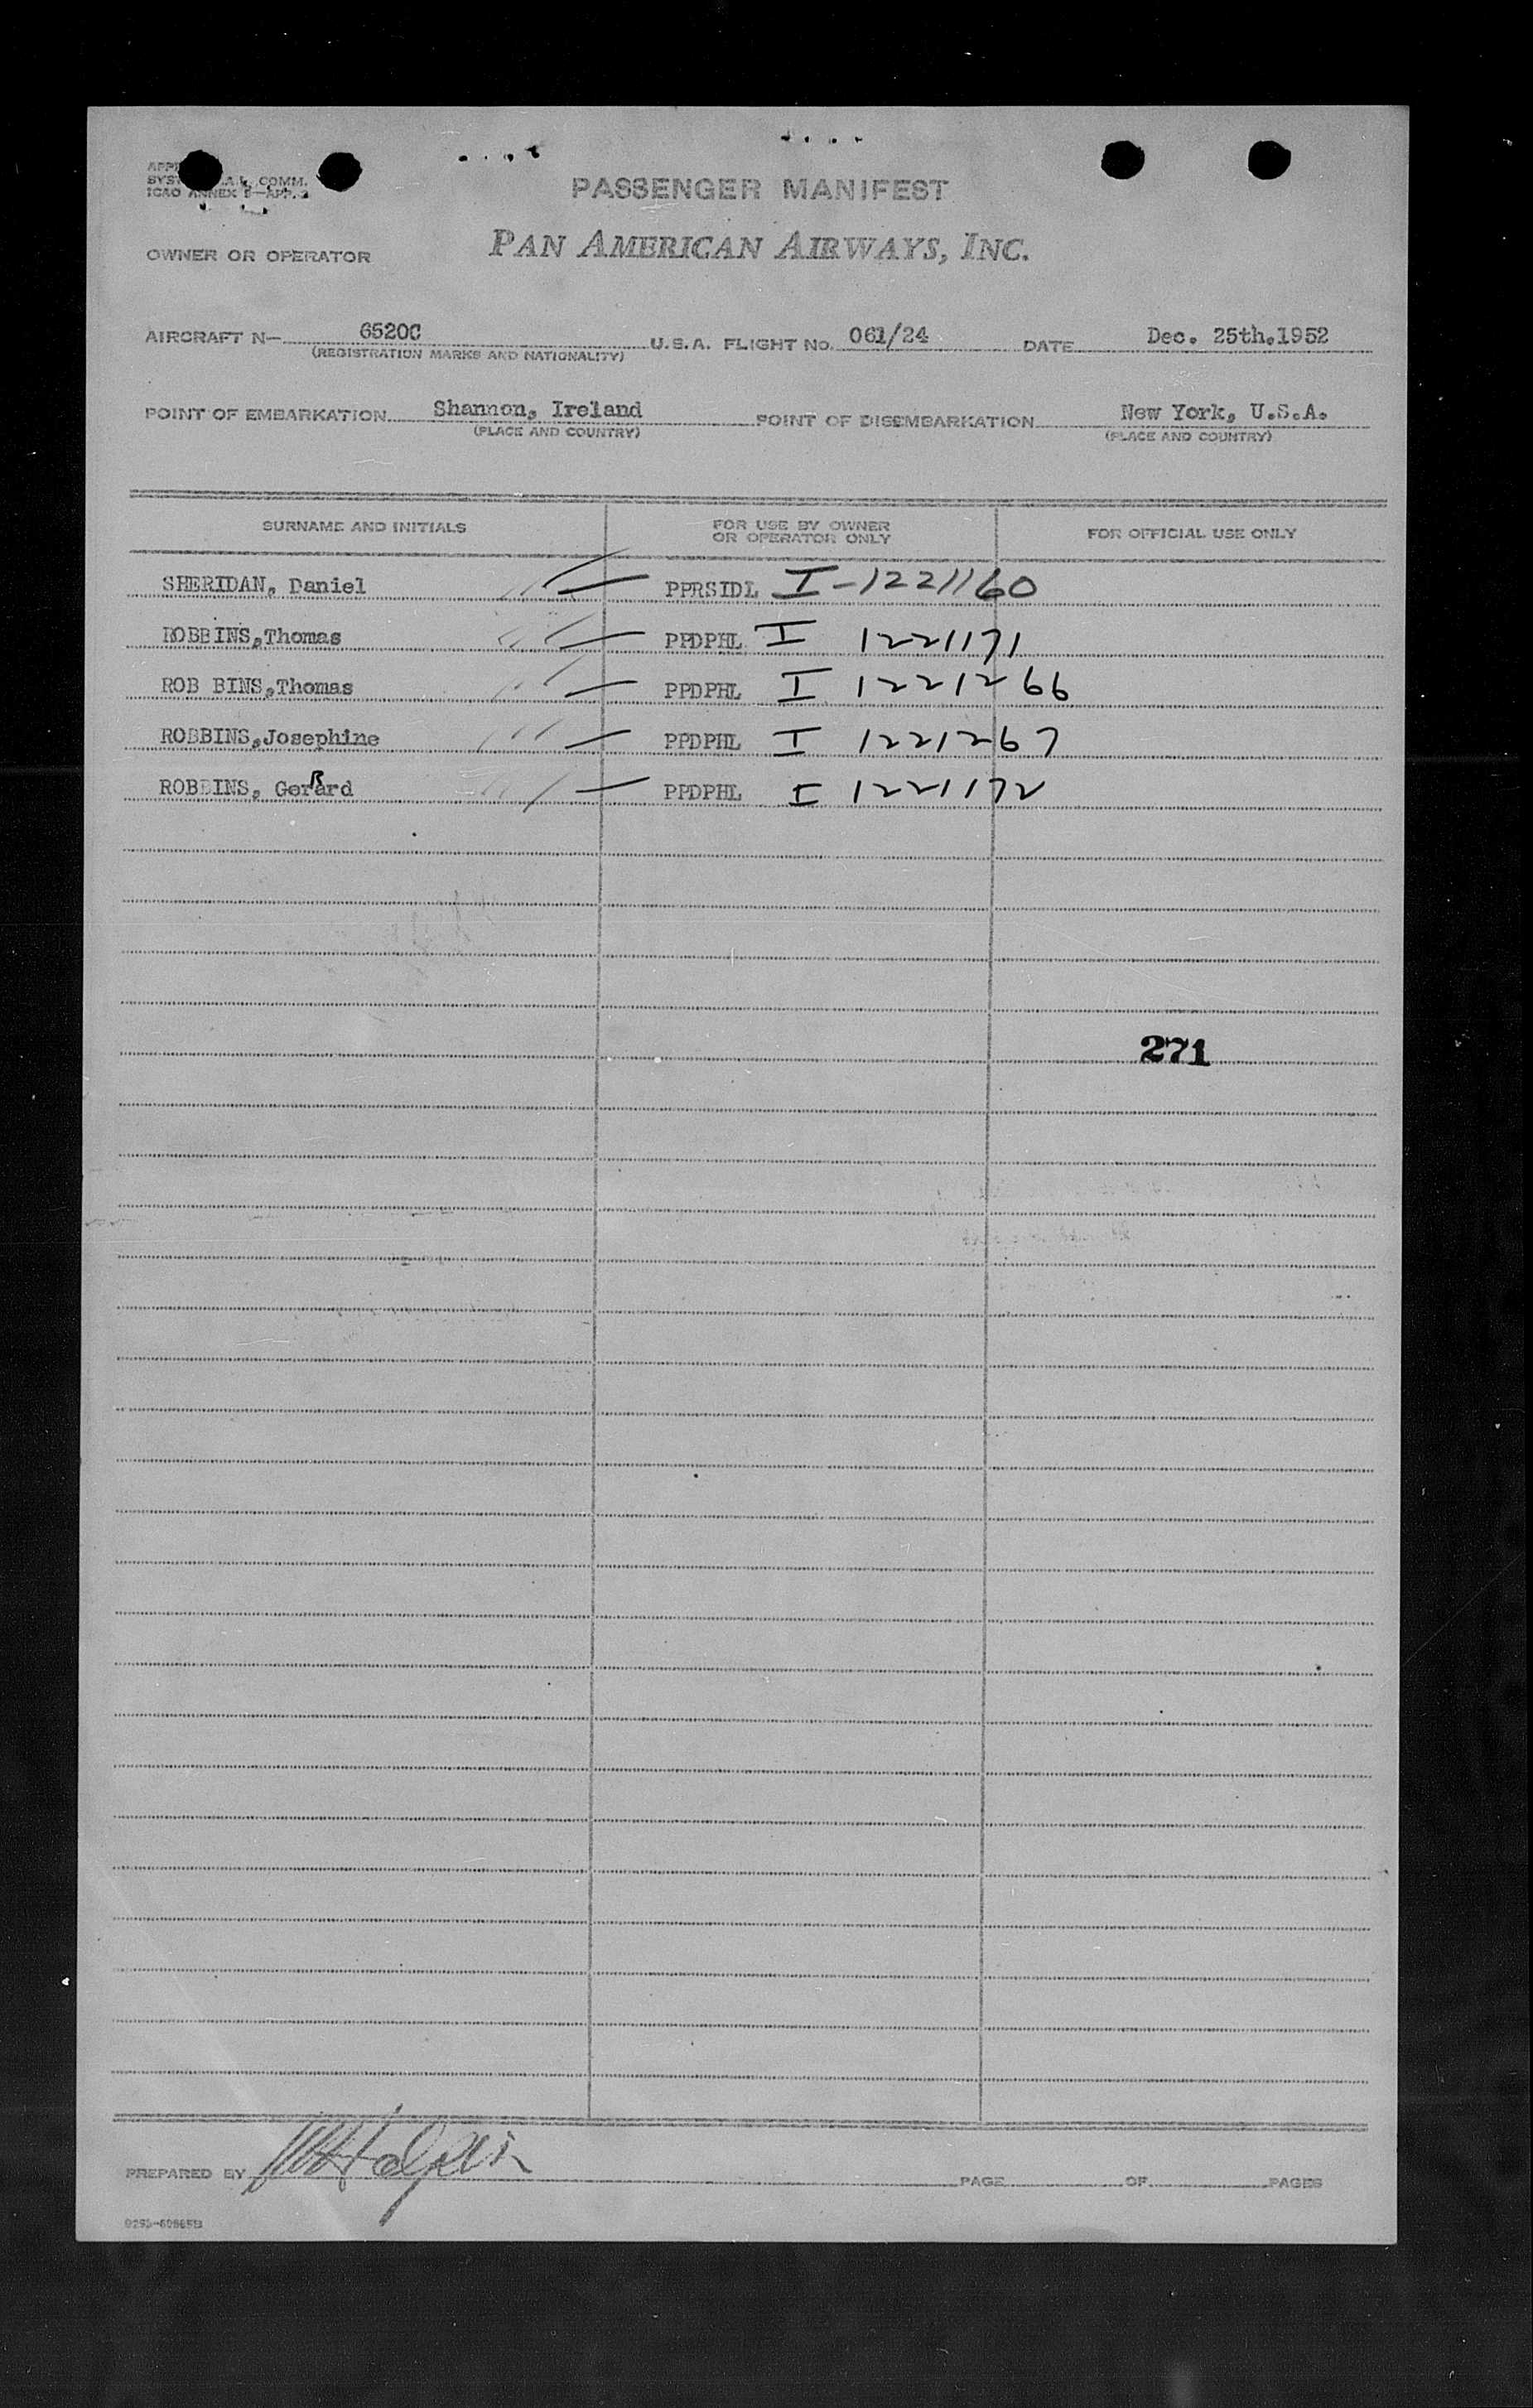 ICAO ANNEX 9—APP. 2
PASSENGER MANIFEST
OWNER OR OPERATOR PAN AMERICAN AIRWAYS, INC.
AIRCRAFT N— 6520C U.S.A. FLIGHT No. 061/24 DATE Dec. 25th.1952
(REGISTRATION MARKS AND NATIONALITY)
POINT OF EMBARKATION Shannon, Ireland POINT OF DISEMBARKATION New York, U.S.A.
(PLACE AND COUNTRY) (PLACE AND COUNTRY)
SURNAME AND INITIALS FOR USE BY OWNER OR OPERATOR ONLY FOR OFFICIAL USE ONLY
SHERIDAN, Daniel PPRSIDL I-1221160
ROBBINS,Thomas PPDPHL I 1221171
ROB BINS,Thomas PPDPHL I 1221266
ROBBINS,Josephine PPDPHL I 1221267
ROBBINS, Gerard PPDPHL I 1221172
271
PREPARED BY PAGE OF PAGES